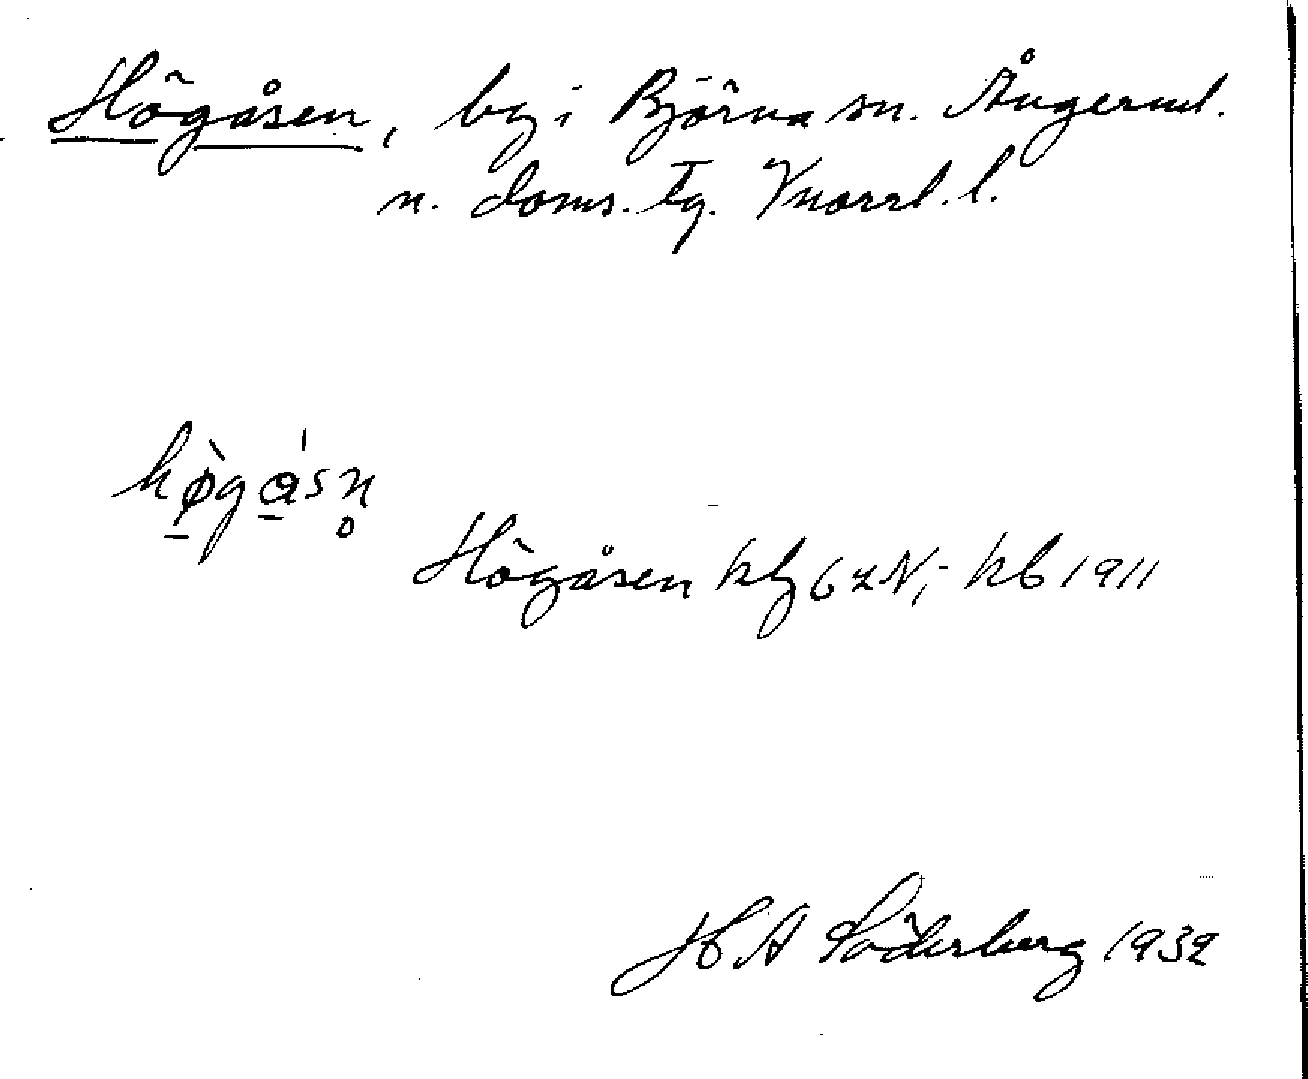 Högåsen, by i Björna sn. Ångerml.
n. doms. tg. Vnorrl. l.
hø̀gásn̥
Högåsen hly 6 z N; - kb 1911
H A Söderberg 1932